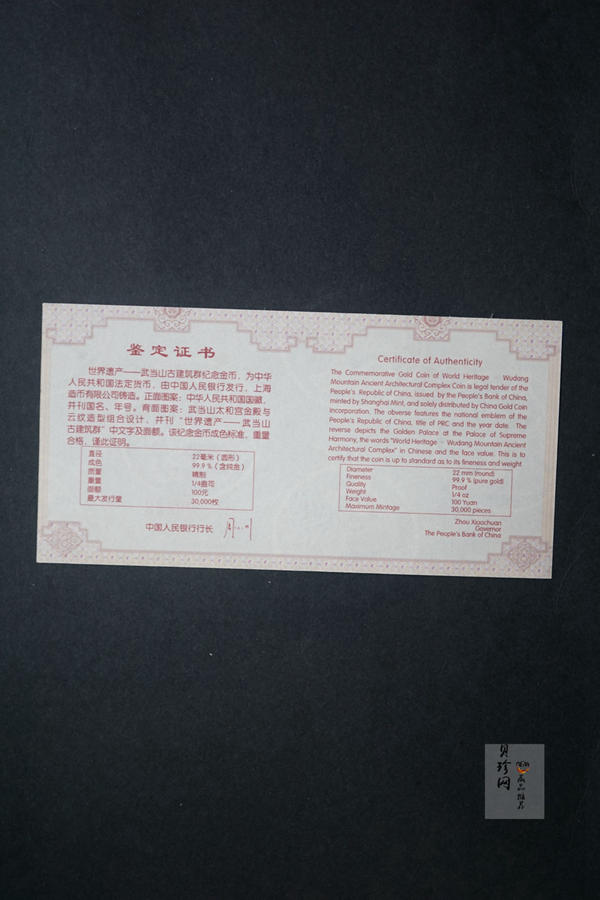 鉴定证书
世界遗产——武当山古建筑群纪念金币，为中华
人民共和国法定货币，由中国人民银行发行，上海
造币有限公司铸造。正面图案：中华人民共和国国徽，
并刊国名、年号。背面图案：武当山太和宫金殿与
云纹造型组合设计，并刊“世界遗产——武当山
古建筑群”中文字及面额。该纪念金币成色标准，重量
合格，谨此证明。
直径 22毫米（圆形）
成色 99.9%（含纯金）
质量 精制
重量 1/4盎司
面额 100元
最大发行量 30,000枚
中国人民银行行长
Certificate of Authenticity
The Commemorative Gold Coin of World Heritage — Wudang
Mountain Ancient Architectural Complex Coin is legal tender of the
People's Republic of China, issued by the People's Bank of China,
minted by Shanghai Mint, and solely distributed by China Gold Coin
Incorporation. The obverse features the national emblem of the
People's Republic of China, title of PRC and the year date. The
reverse depicts the Golden Palace at the Palace of Supreme
Harmony, the words "World Heritage — Wudang Mountain Ancient
Architectural Complex" in Chinese and the face value. This is to
certify that the coin is up to standard as to its fineness and weight
Diameter 22 mm (round)
Fineness 99.9 % (pure gold)
Quality Proof
Weight 1/4 oz
Face Value 100 Yuan
Maximum Mintage 30,000 pieces
Zhou Xiaochuan
Governor
The People's Bank of China
贝珍网
藏品推荐